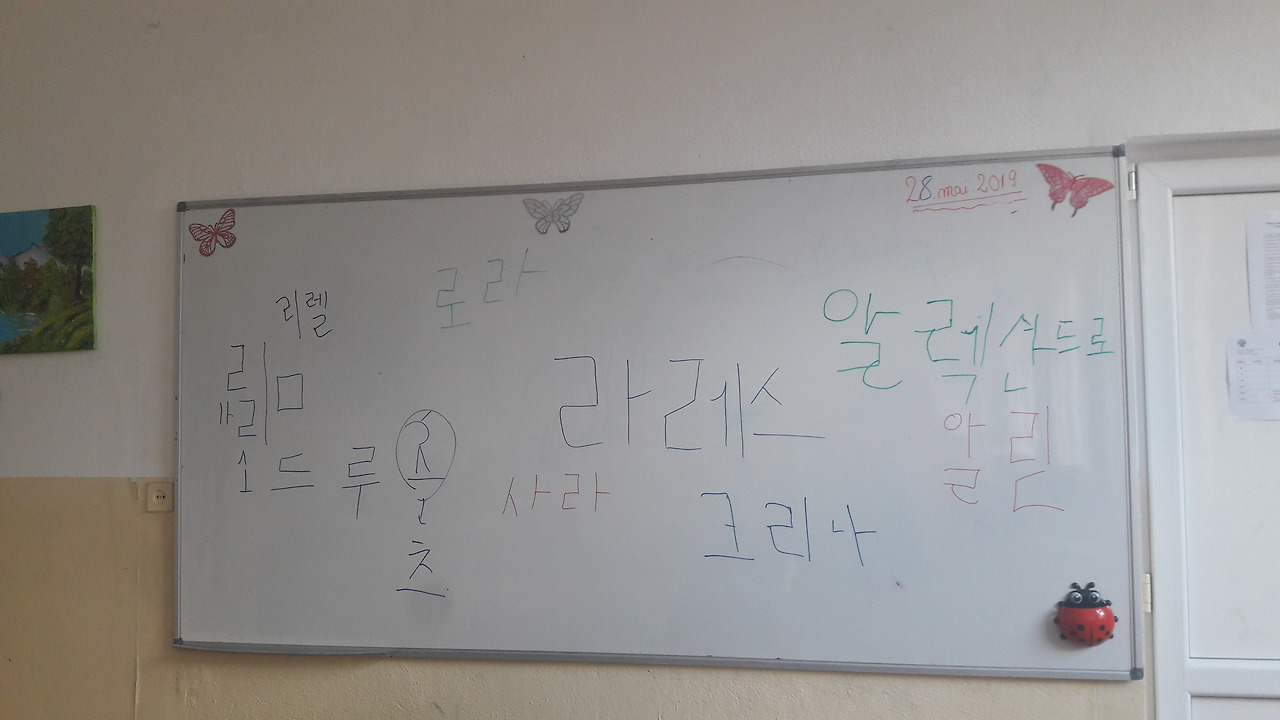 28 mai 2019
로라
리렐
알렉산드로
라레스
알린
사라
크리나
드루
츠